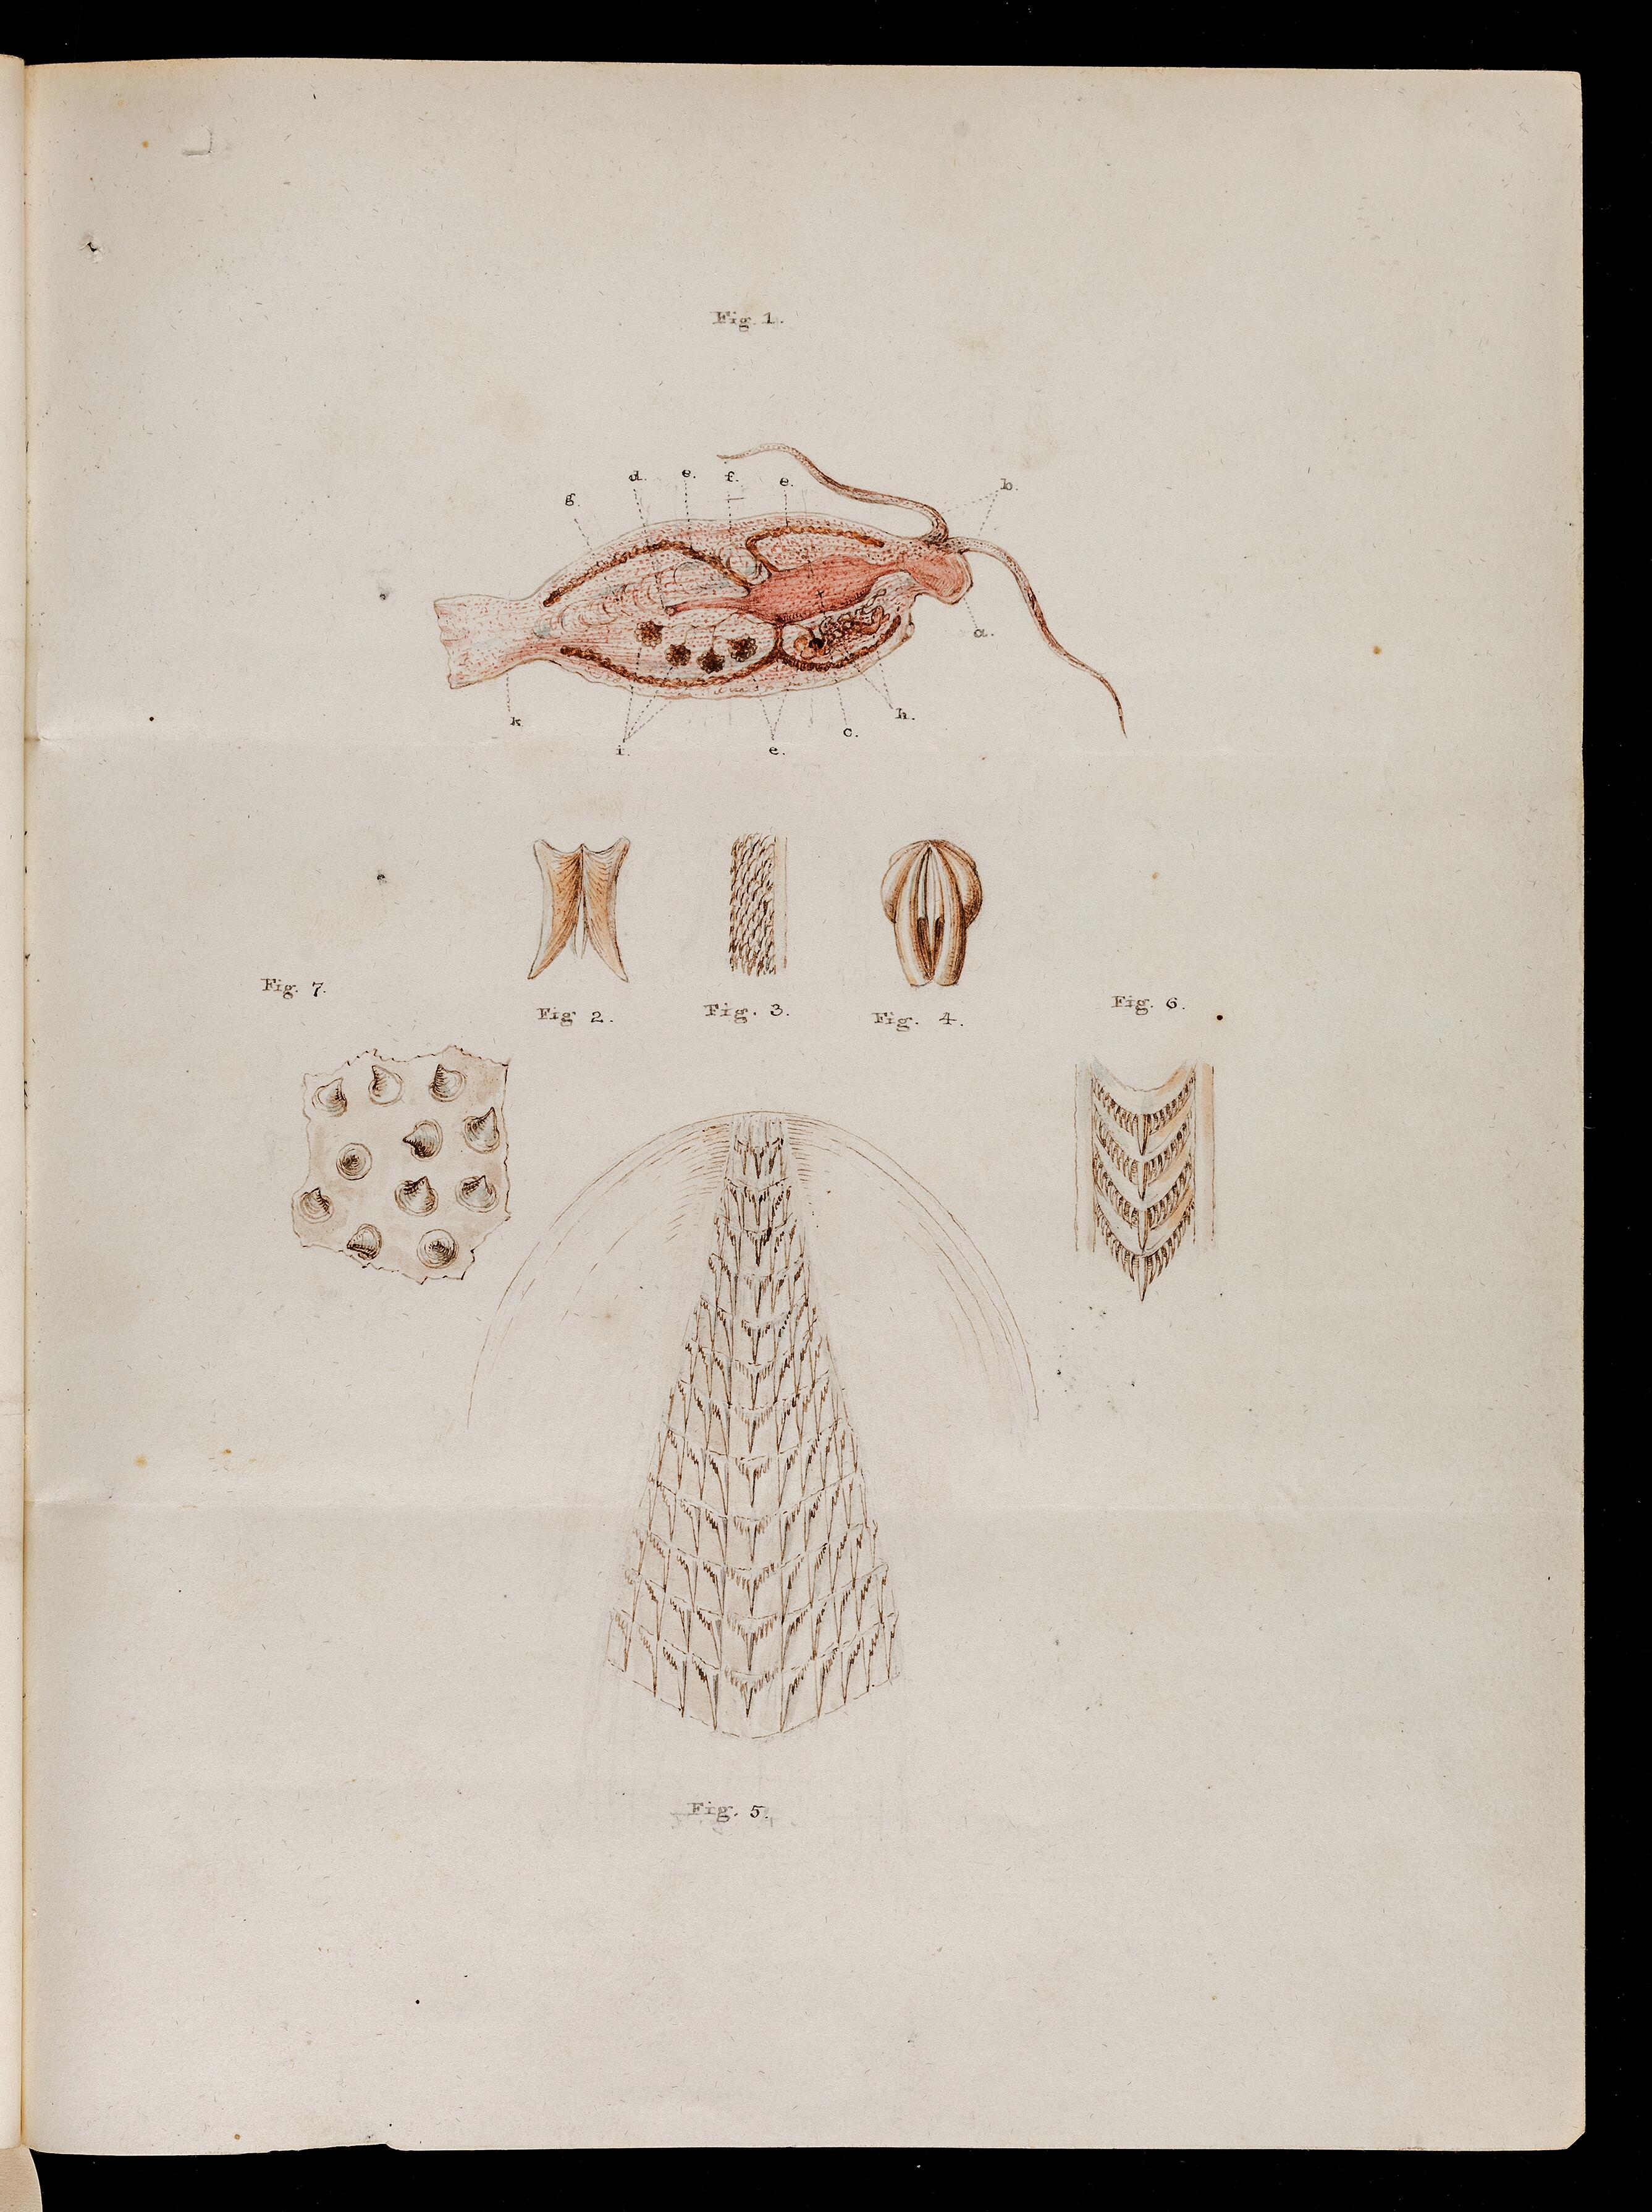 Fig. 1.
d. e. f. e. b.
g.
a.
k. h.
c.
i. e.
Fig. 7.
Fig 2. Fig. 3. Fig. 4. Fig. 6.
Fig. 5.